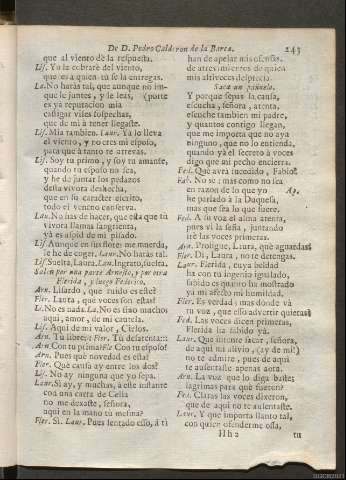 De D. Pedro Calderon de la Barca.
243
que al viento dè la respuesta.
Lis. Yo la cobrarè del viento,
que es à quien tu se la entregas.
La. No haràs tal, que aunque no im-
que le juntes, y le leas, (porte
es ya reputacion mia
castigar viles sospechas,
que de mi à tener llegaste.
Lis. Mia tambien. Laur. Yà lo lleva
el viento, y no eres mi esposo,
para que à tanto te atrevas.
Lis. Soy tu primo, y soy tu amante,
quando tu esposo no sea,
y he de juntar los pedazos
desta vivora deshecha,
que en su caracter escrito,
todo el veneno conserva.
Lau. No has de hacer, que esta que tù
vivora llamas sangrienta,
yà es aspid de mi pisado.
Lis. Aunque en sus flores me muerda,
le he de coger. Laur. No haràs tal.
Lis. Suelta, Laura. Lau. Ingrato, suelta.
Salen por una parte Arnesto, y por otra
Flerida, y luego Federico.
Arn. Lisardo, què ruido es este?
Fler. Laura, què voces son estas?
Li. No es nada. La. No es sino muchos
aqui, amor, de mi cautela.
Lis. Aqui de mi valor, Cielos.
Arn. Tu libre? Fler. Tu desatenta?
Arn. Con tu prima? Fle. Con tu esposo?
Arn. Pues què novedad es esta?
Fler. Què causa ay entre los dos?
Lis. No ay ninguna que yo sepa.
Laur. Si ay, y muchas, à este instante
con una carta de Celia
no me dexaste, señora,
aqui en la mano tu mesma?
Fler. Si. Laur. Pues leendo esso, à ti
han de apelar mis ofensas.
de atrevimientos de quien
mis altiveces desprecia.
Saca un pañuelo.
Y porque sepas la causa,
escucha, señora, atenta,
escuche tambien mi padre,
y quantos contigo llegan,
que me importa que no aya
ninguno, que no lo entienda,
quando yà el secreto à voces
digo que mi pecho encierra.
Fed. Què avrà sucedido, Fabio?
Fab. No sè: mas como no sea
en razon de lo que yo Ap.
he parlado à la Duquesa,
mas que sea lo que fuere.
Fed. A su voz el alma atenta,
pues vì la seña, juntando
irè las voces primeras.
Arn. Prosigue, Laura, què aguardas?
Fler. Di, Laura, no te detengas.
Laur. Flerida, cuya beldad
ha con tu ingenio igualado,
sabido es quanto ha mostrado
yà mi afecto mi humildad.
Fler. Es verdad; mas donde và
tu voz, que esso advertir quieras?
Fed. Las voces dicen primeras,
Flerida ha sabido yà.
Laur. Que intente sacar, señora,
de aqui mi alivio, (ay de mì!)
no te admire, pues de aqui
te ausentaste apenas aora.
Arn. La voz que lo diga bastes
lagrimas para què fueron?
Fed. Claras las voces dixeron,
que de aqui no te ausentaste.
Laur. Y que importa llanto tal,
con quien ofenderme ossa,
Hh 2
tu